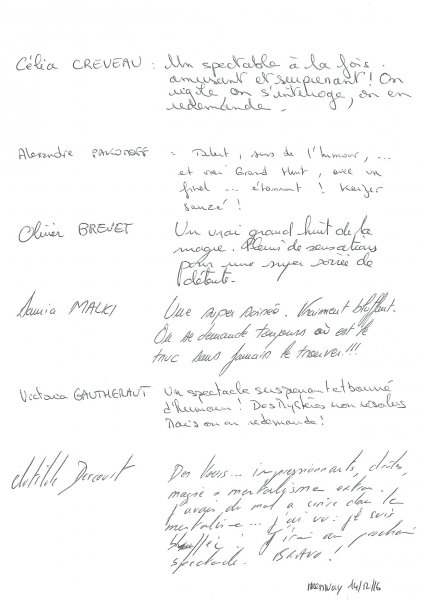 Célia CREVEAU : Un spectable à la fois
amusant et surprenant ! On
rigole on s'interroge, on en
redemande.
Alexandre : Talent, sens de l'humour, ...
et vrai Grand Huit, avec un
final ... étonnant ! Keyzer
Sauzé !
Olivier BREVET Un vrai grand huit de la
magie. Pleins de sensations
pour une super soirée de
détente.
Samia MALKI Une super soirée. Vraiment bluffant.
On se demande toujours où est le
truc sans jamais le trouver !!!
Victoria GAUTHERAUT Un spectacle surprenant et bourré
d'humour ! Des Mystères non résolus
Mais on en redemande !
Clotilde Des tours ... impressionnants, drôles,
magie & mentalisme extra.
J'avais du mal à croire dans le
mentalisme ... j'ai vu : je suis
bluffée ! J'irai au prochain
spectacle. BRAVO !
14/12/16